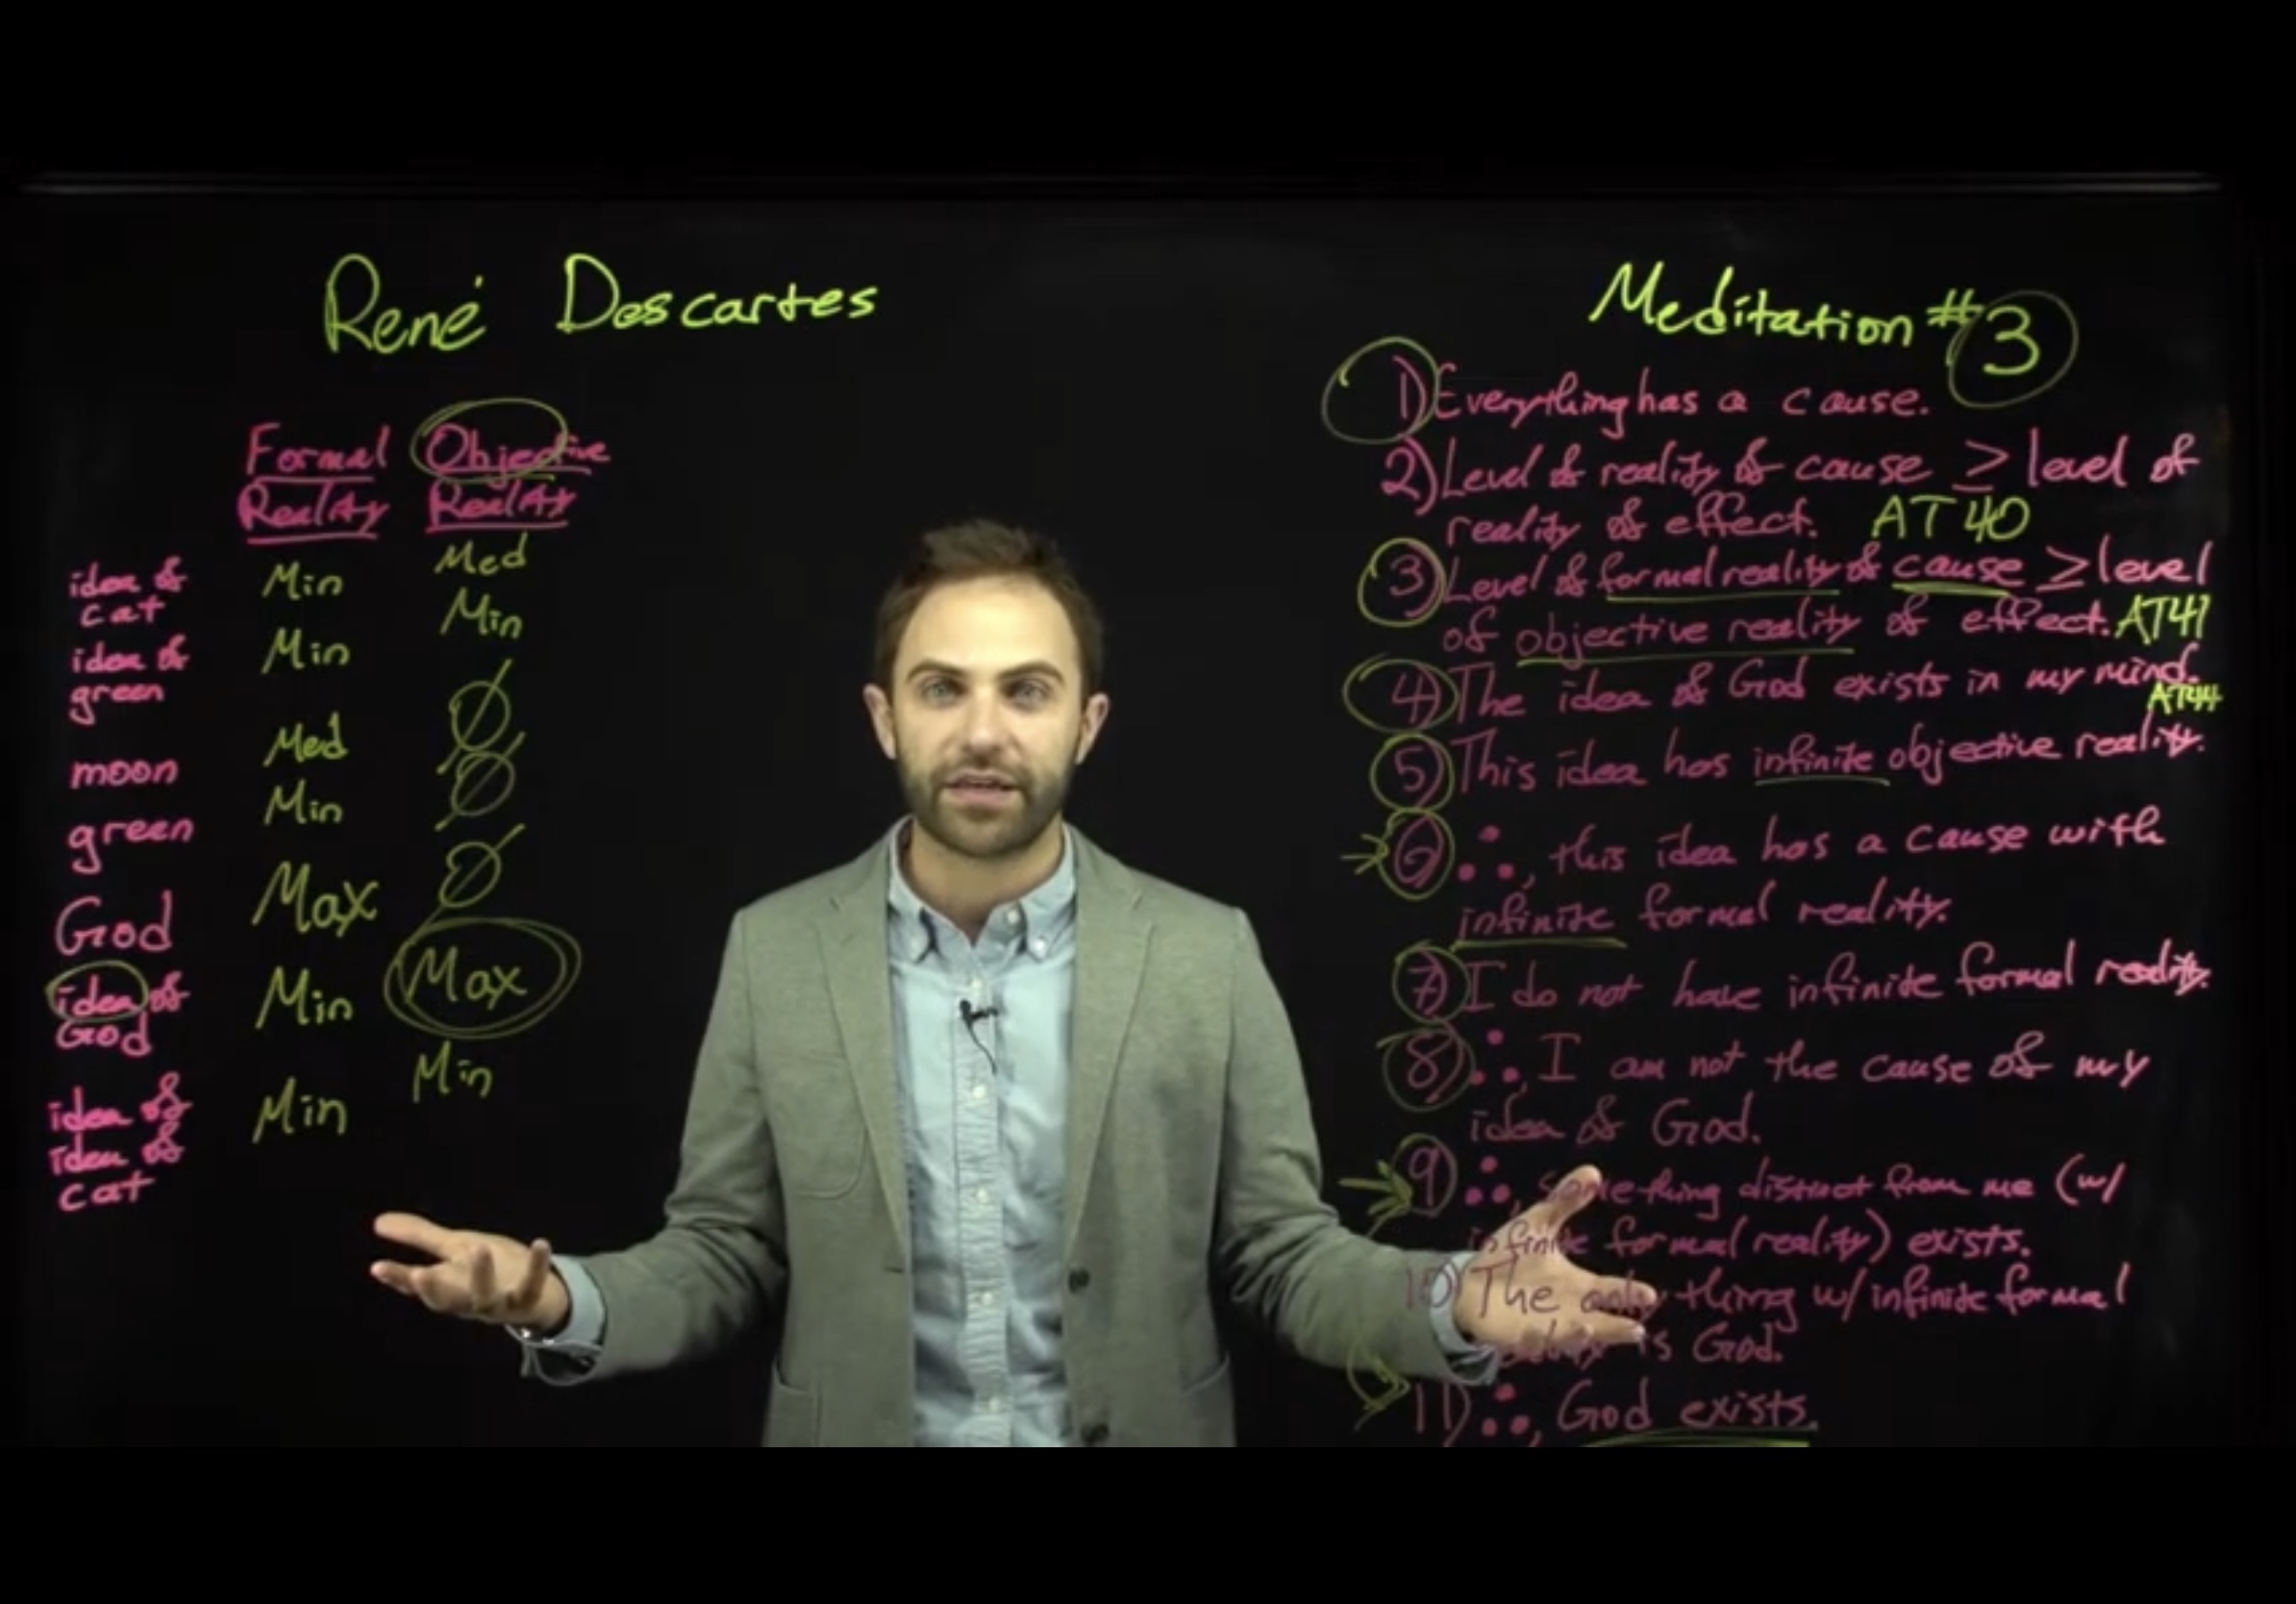 René Descartes
Formal Objective
Reality Reality
idea of Min Med
cat
idea of Min Min
green
moon Med Ø
green Min Ø
God Max Ø
idea of Min Max
God
idea of Min Min
idea of
cat
Meditation #3
1) Everything has a cause.
2) Level of reality of cause ≥ level of
reality of effect. AT 40
3) Level of formal reality of cause ≥ level
of objective reality of effect. AT41
4) The idea of God exists in my mind.
AT44
5) This idea has infinite objective reality.
6) ∴, this idea has a cause with
infinite formal reality.
7) I do not have infinite formal reality.
8) ∴, I am not the cause of my
idea of God.
9) ∴, something distinct from me (w/
infinite formal reality) exists.
10) The only thing w/ infinite formal
reality is God.
11) ∴, God exists.